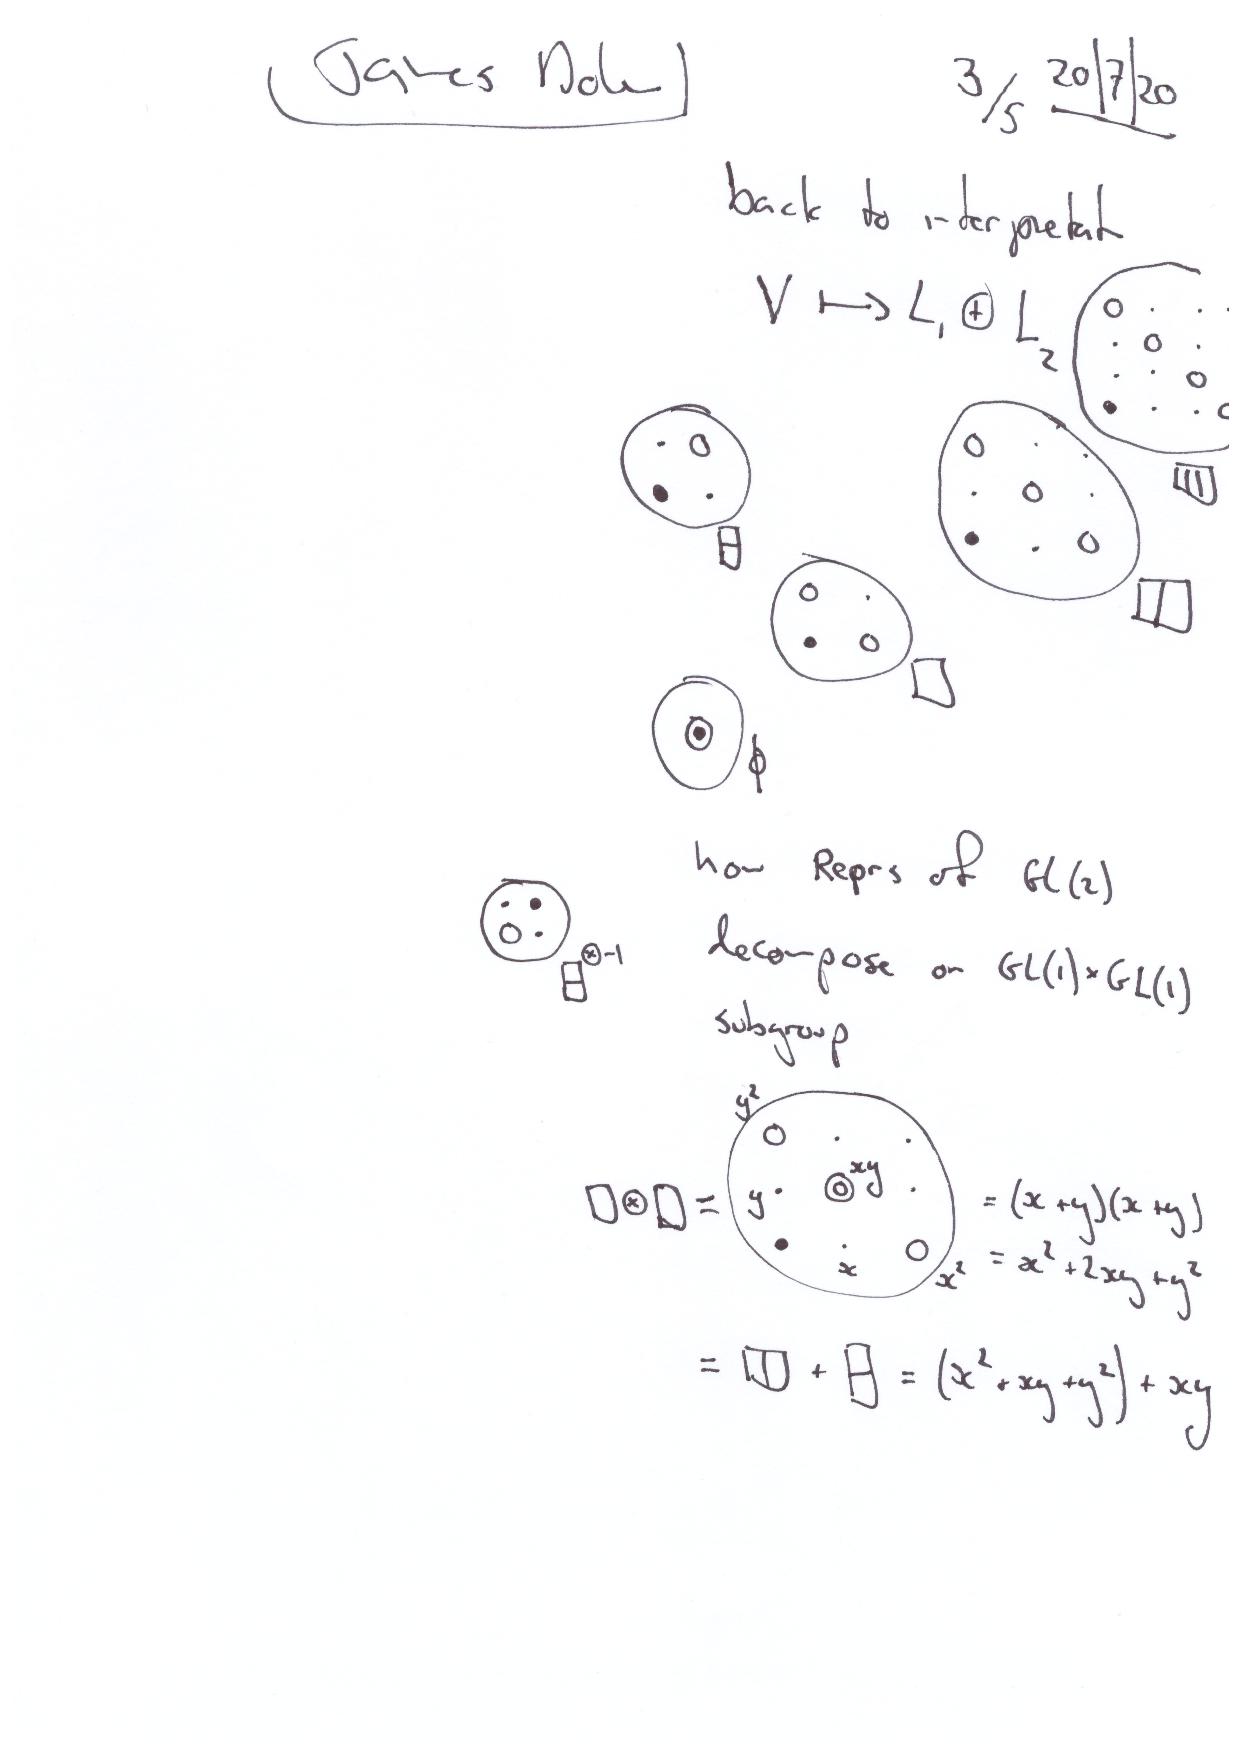 James Dolan
3/5 20/7/20
back to interpretat
V ↦ L₁ ⊕ L₂
φ
how Reprs of GL(2)
decompose on GL(1)×GL(1)
subgroup
⊗-1
y²
xy
y
x
x²
□⊗□ =
= (x+y)(x+y)
= x²+2xy+y²
= □□ + 日 = (x²+xy+y²)+xy